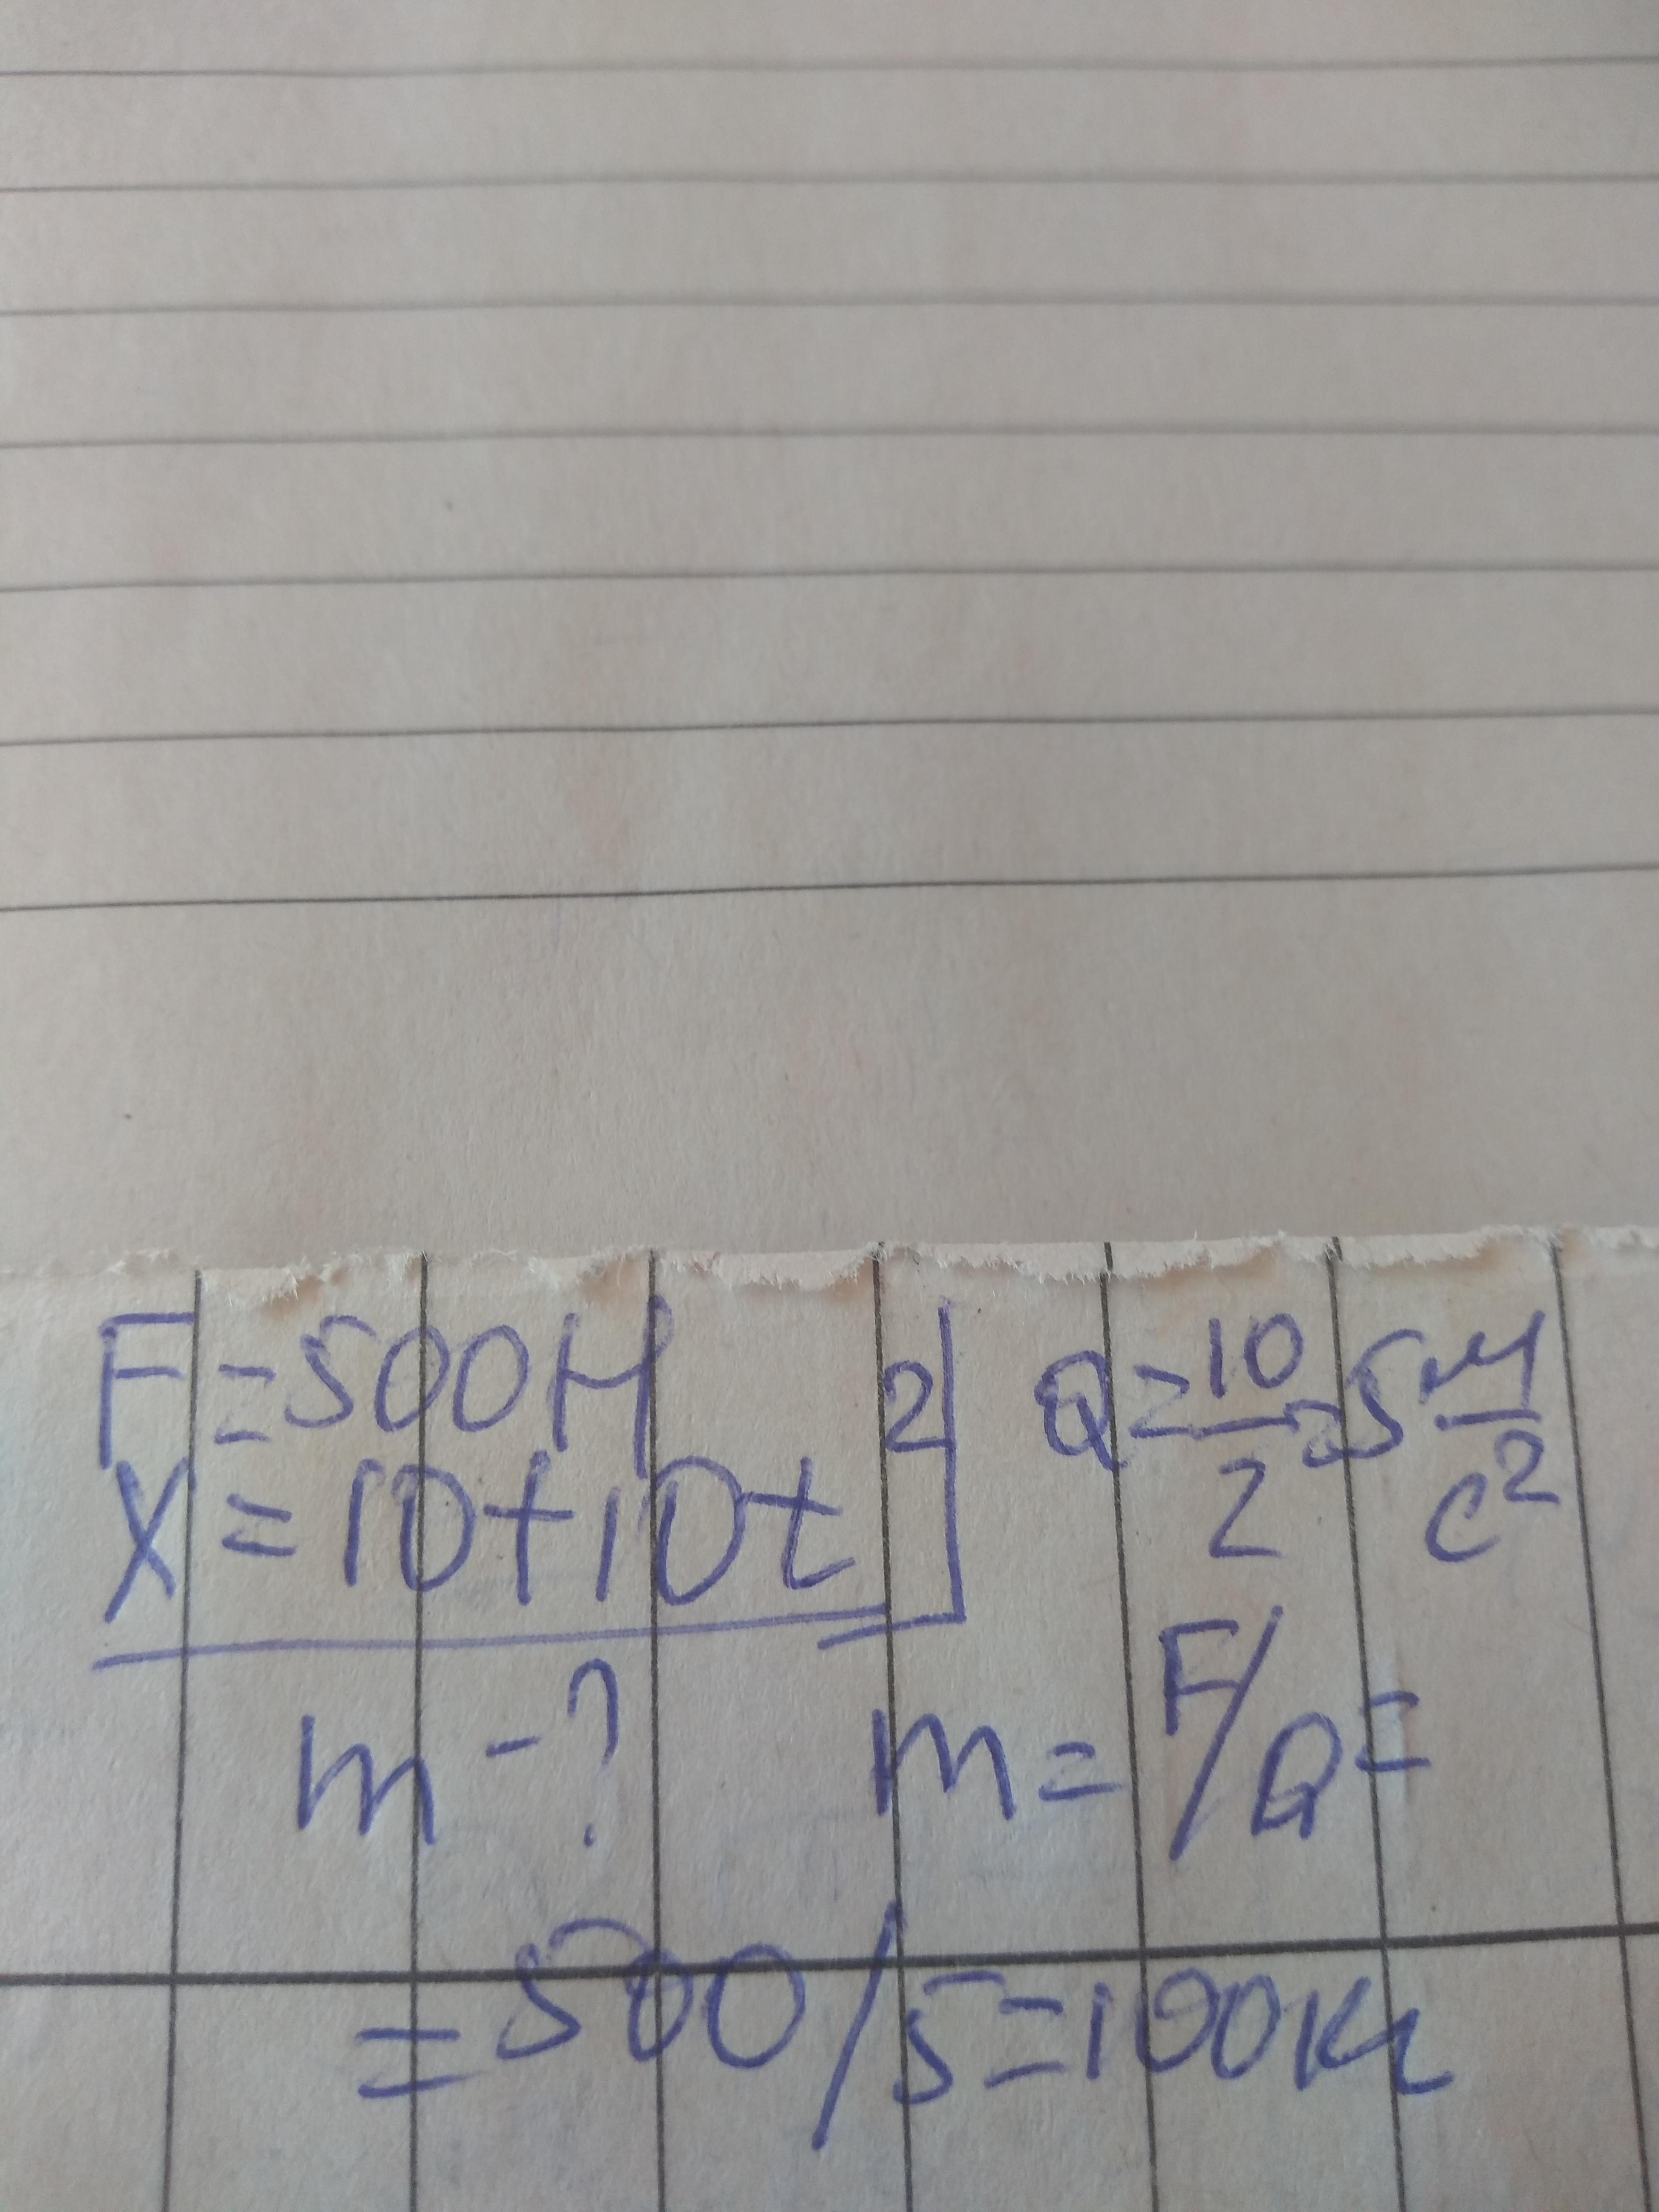 F=500Н
X=10+10t²
a=10/2=5 м/с²
m-?
m=F/a=
=500/5=100кг